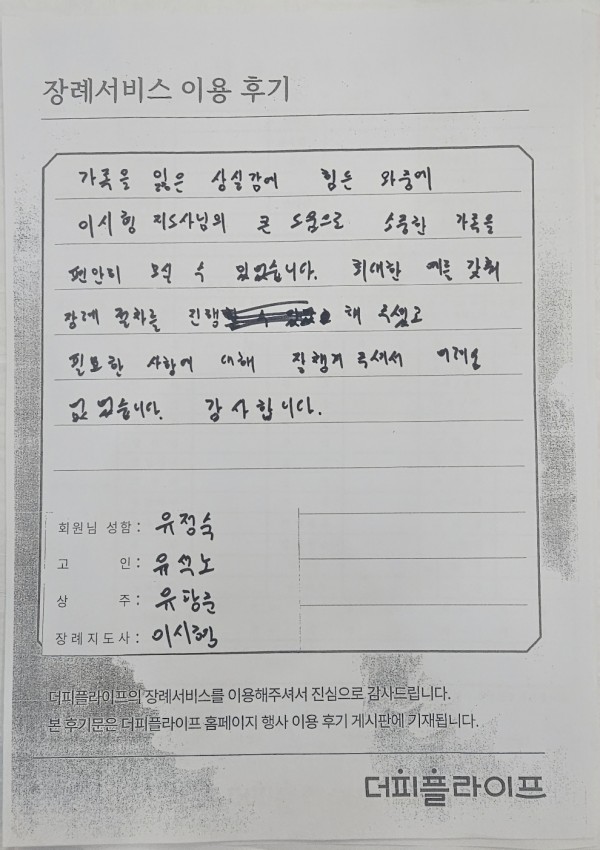 장례서비스 이용 후기
가족을 잃은 상실감에 힘든 와중에
이시형 지도사님의 큰 도움으로 소중한 가족을
편안히 모실 수 있었습니다. 최대한 예를 갖춰
장례 절차를 진행 해 주셨고
필요한 사항에 대해 잘 챙겨 주셔서
없었습니다. 감사합니다.
회원님 성함 : 유정숙
고 인 : 유석노
상 주 :
장례지도사 : 이시형
더피플라이프의 장례서비스를 이용해주셔서 진심으로 감사드립니다.
본 후기문은 더피플라이프 홈페이지 행사 이용 후기 게시판에 기재됩니다.
더피플라이프